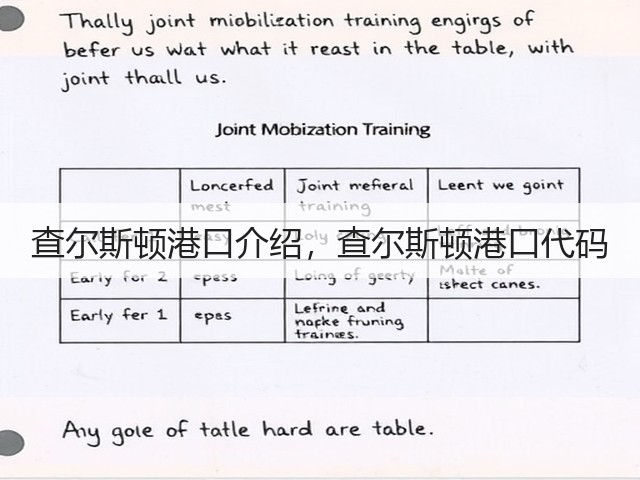 Thally joint miobilization training engirgs of
befer us wat what it reast in the table, with
joint thaull us.
Joint Mobization Training
Loncerfed mest
Joint meferal training
Leent we goint
查尔斯顿港口介绍，查尔斯顿港口代码
Early for 2
epess
Loing of geerty
Malte of ishect canes.
Early fer 1
epes
Lefrine and napke fruning traines.
Any gole of tatle hard are table.